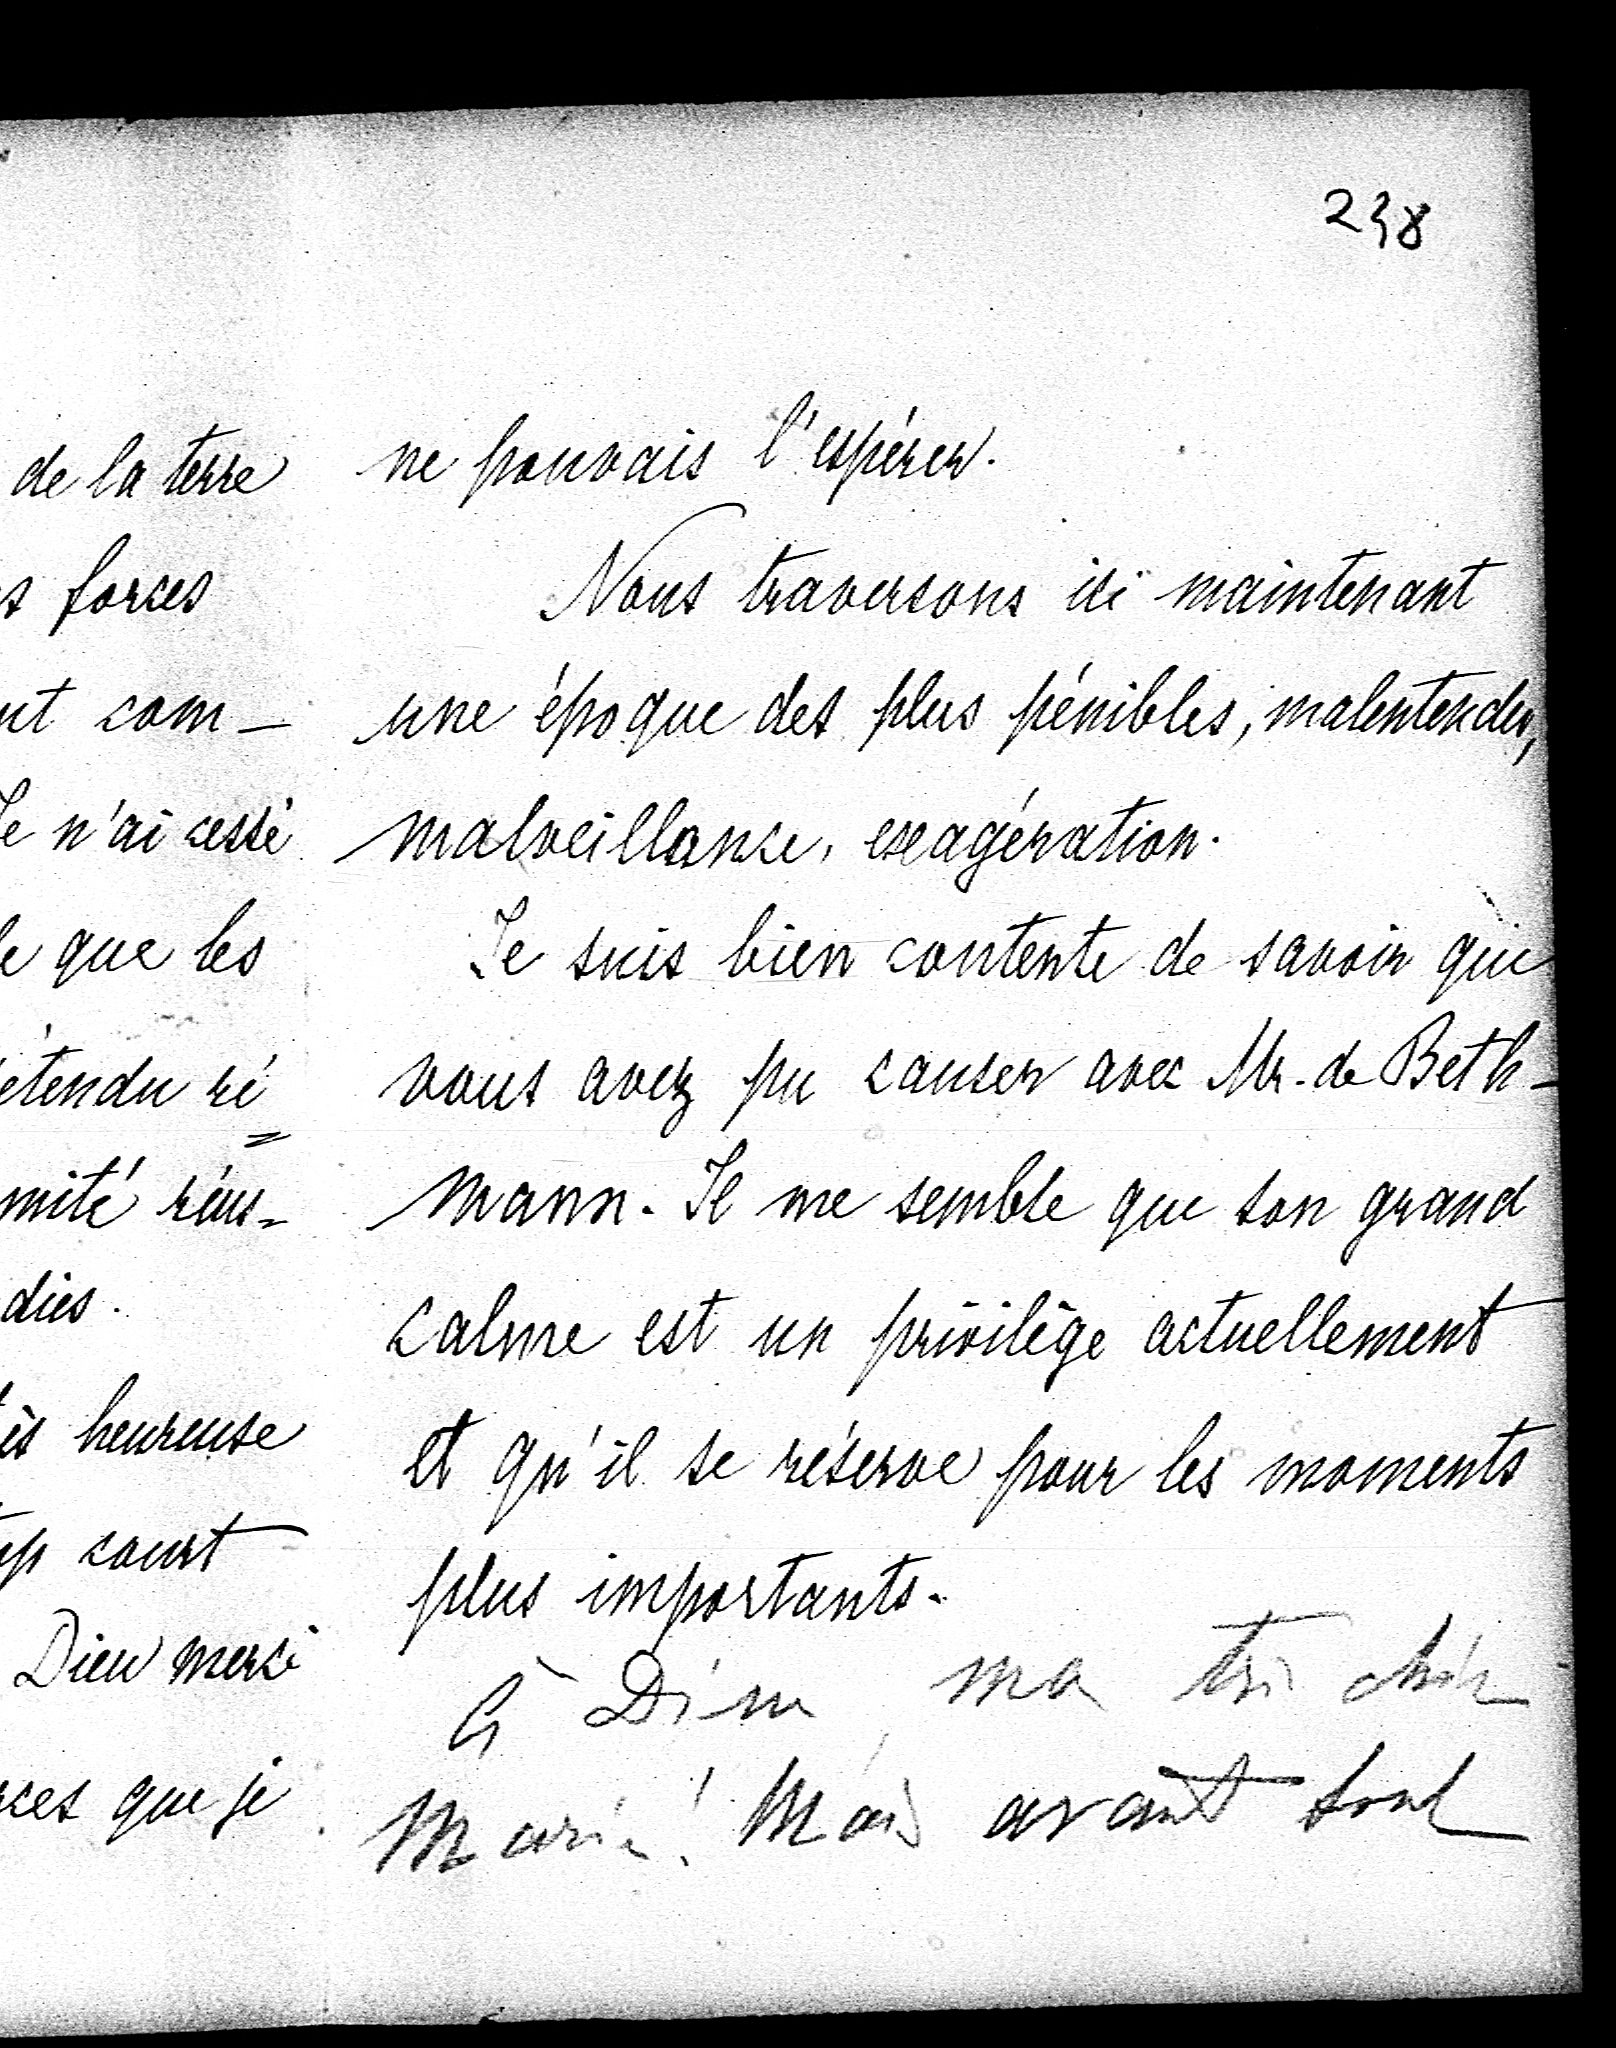 238
de la terre
forces
com-
Je n'ai cessé
que les
ré
réus-
heureuse
court
Dieu merci
que je
ne pouvais l'espérer.
Nous traversons ici maintenant
une époque des plus pénibles, malentendus,
malveillance, exagération.
Je suis bien contente de savoir que
vous avez pu causer avec Mr. de Beth-
mann. Il me semble que son grand
calme est un privilège actuellement
et qu'il se réserve pour les moments
plus importants.
à Dieu, ma très chère
Marie! Mais avant tout